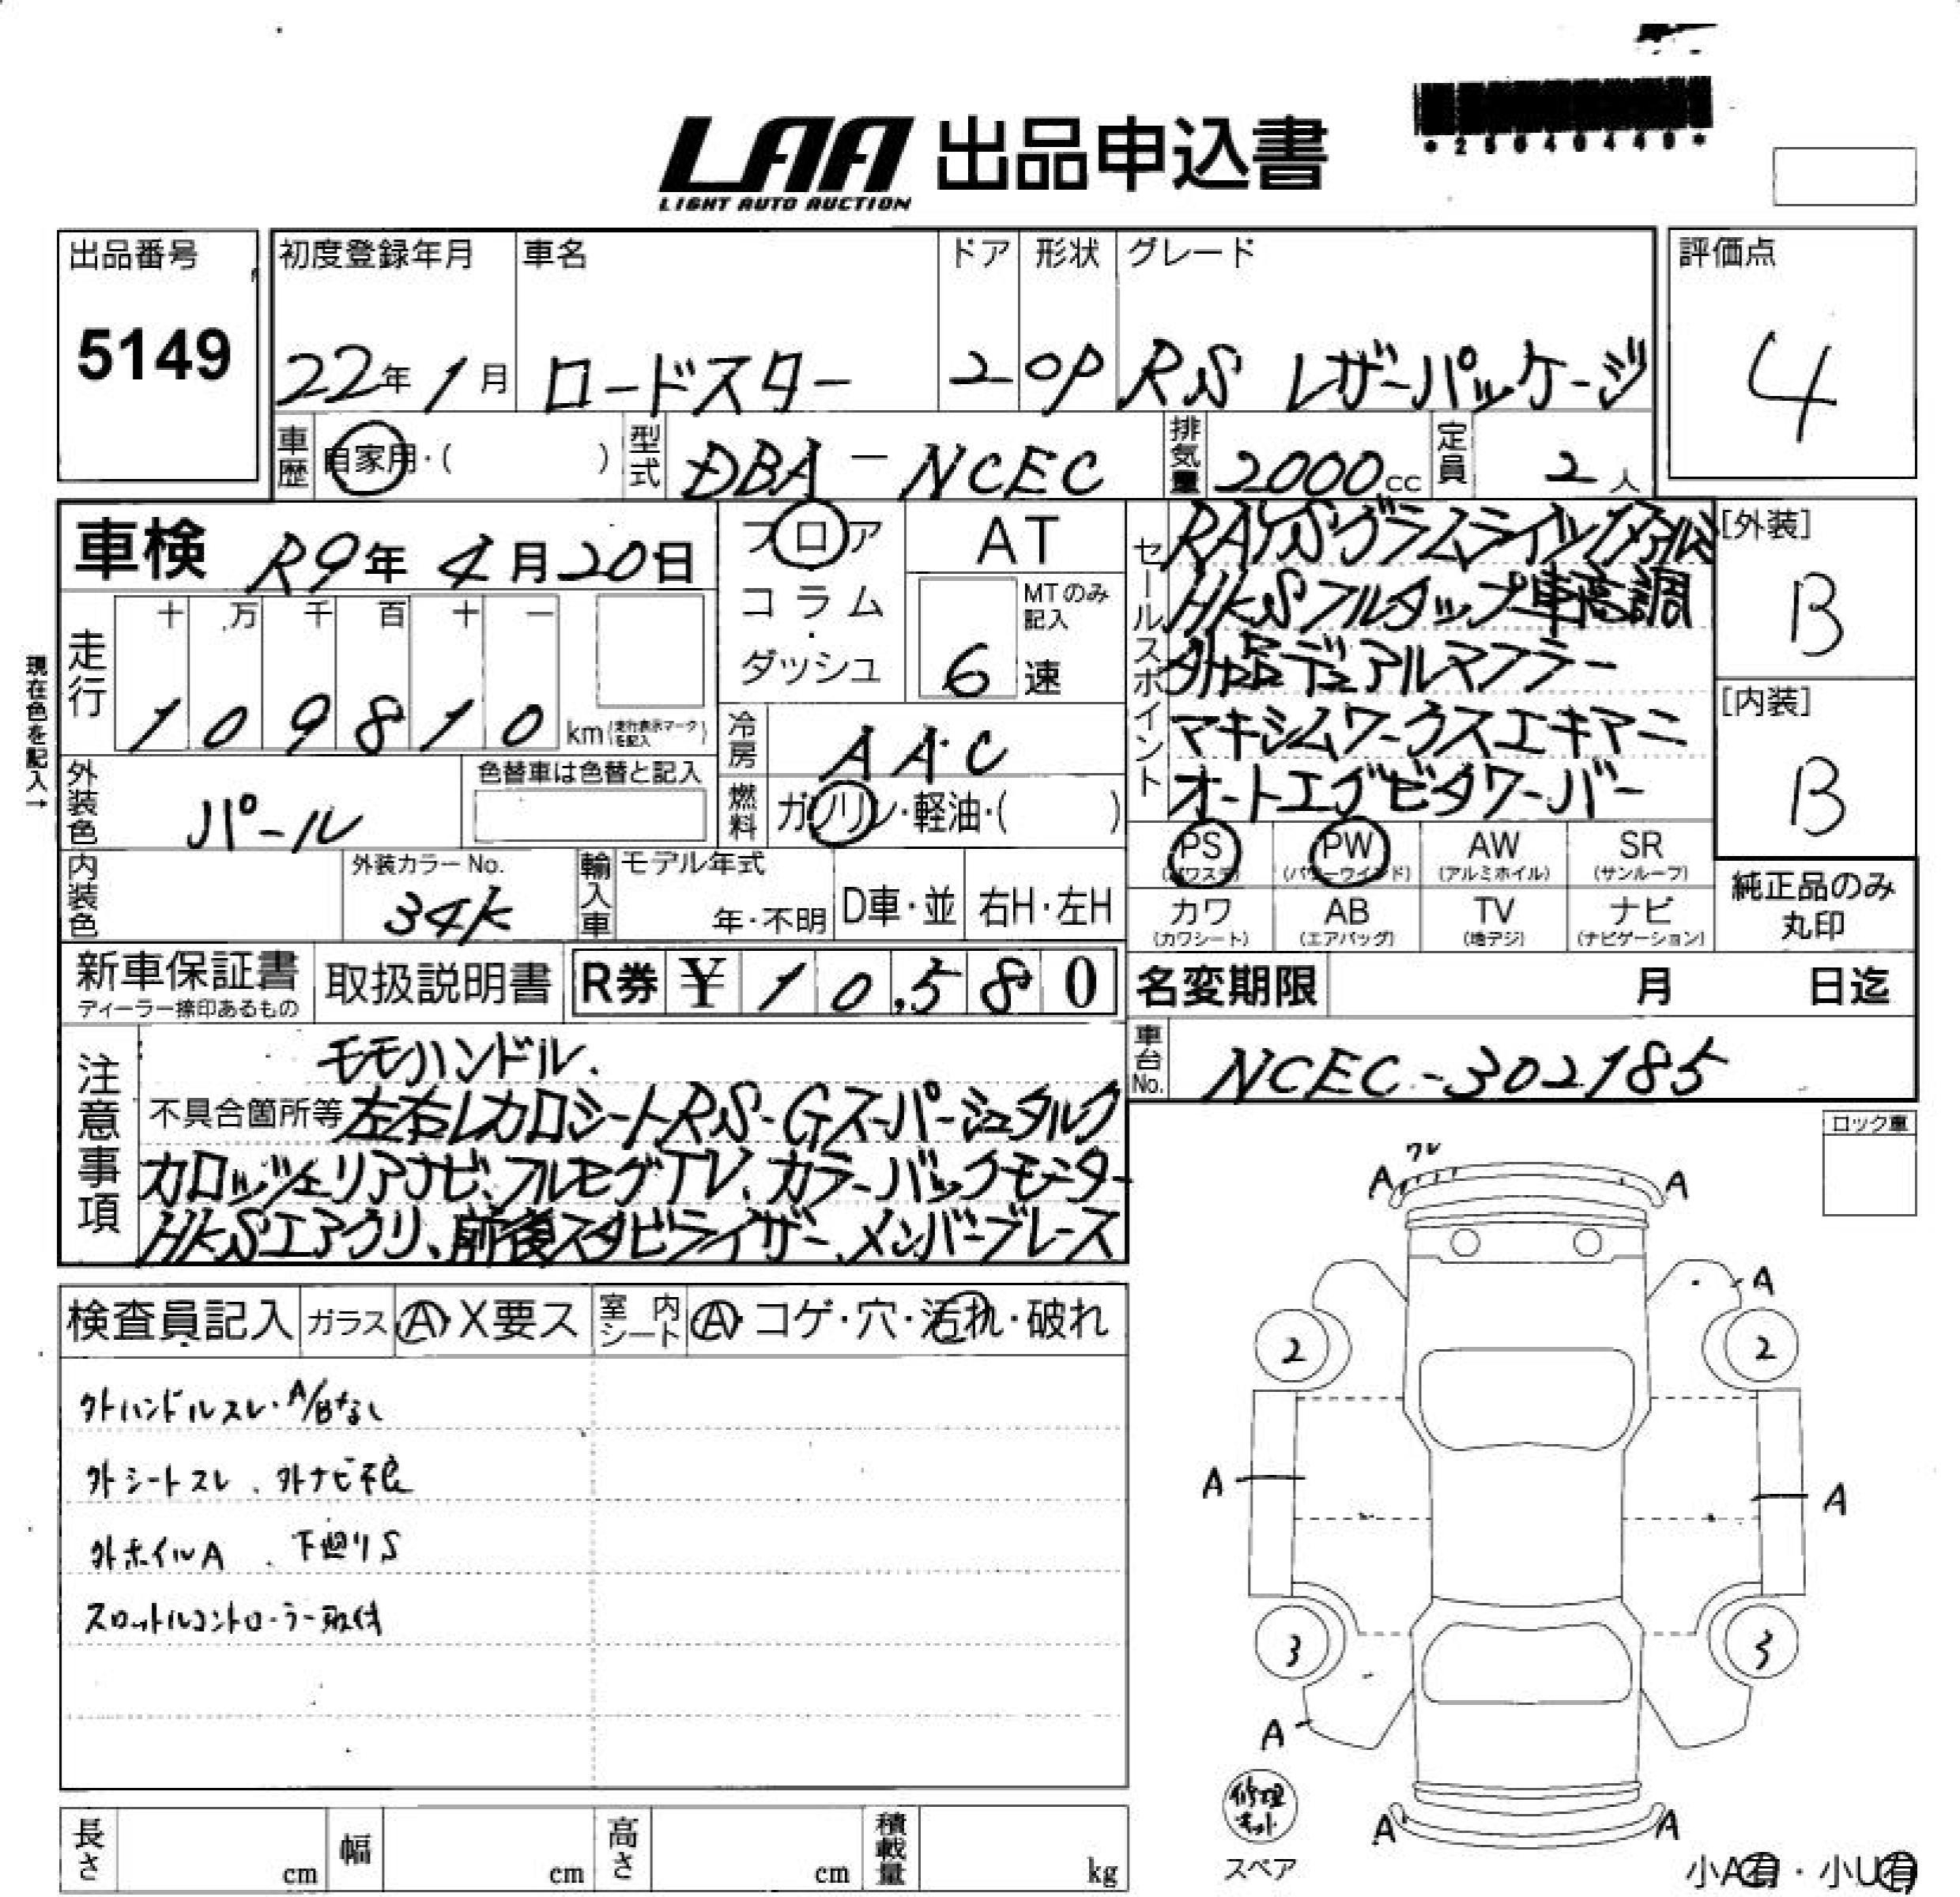 LAA 出品申込書
LIGHT AUTO AUCTION
*25040449*
出品番号
5149
初度登録年月
22年1月
車名
ロードスター
ドア
2
形状
OP
グレード
RS レザーパッケージ
評価点
4
車歴
自家用・( )
型式
DBA-NCEC
排気量
2000cc
定員
2人
車検 R9年4月20日
フロア
コラム
・
ダッシュ
AT
MTのみ
記入
6速
セールスポイント
RAYSグラムライツ17アルミ
HKSフルタップ車高調
外品デュアルマフラー
マキシムワークスエキマニ
オートエグゼタワーバー
[外装]
B
[内装]
B
現在色を記入→
走行
十 万 千 百 十 一
109810
km(走行表示マークを記入)
冷房
AAC
燃料
ガソリン・軽油・( )
外装色
パール
色替車は色替と記入
内装色
外装カラーNo.
34K
輸入車
モデル年式
年・不明
D車・並
右H・左H
PS
(パワステ)
PW
(パワーウインド)
AW
(アルミホイル)
SR
(サンルーフ)
カワ
(カワシート)
AB
(エアバッグ)
TV
(地デジ)
ナビ
(ナビゲーション)
純正品のみ
丸印
新車保証書
ディーラー捺印あるもの
取扱説明書
R券 ¥10,580
名変期限 月 日迄
車台No.
NCEC-302185
注意事項
モモハンドル、
不具合箇所等 左右レカロシートRS-Gスーパーシュタルク
カロッツェリアナビ、フルセグTV、カラーバックモニター
HKSエアクリ、前後スタビライザー、メンバーブレース
ロック車
検査員記入
ガラス
A・X要ス
室内シート
A・コゲ・穴・汚れ・破れ
外ハンドルスレ・A/Bなし
外シートスレ、外ナビ不良
外ホイルA、下廻りS
スロットルコントローラー取付
ワレ
A
A
A
2
2
A
A
3
3
A
修理キット
スペア
A
A
小A有・小U有
長さ cm
幅 cm
高さ cm
積載量 kg